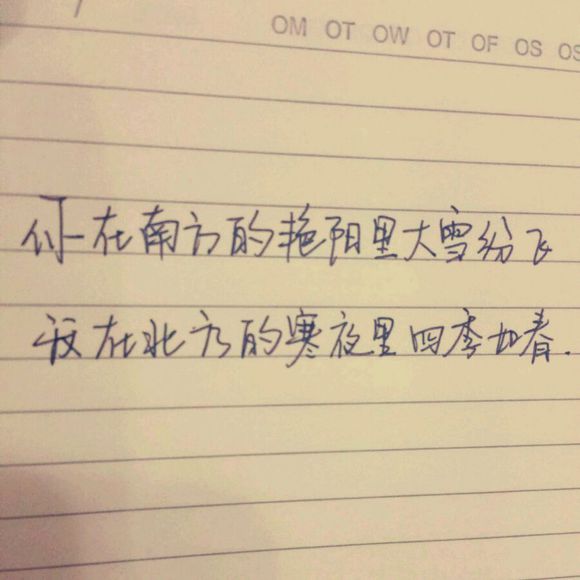 OM OT OW OT OF OS OS
你在南方的艳阳里大雪纷飞
我在北方的寒夜里四季如春.